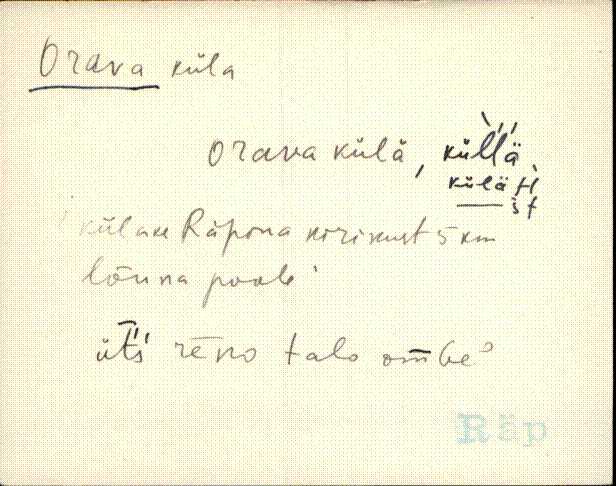 Orava küla
Orava külä, külĺä,
külä st
st
külake Räpina kirikust 5 km
lõuna poole
üt́s rēno talo om̄be
Räp